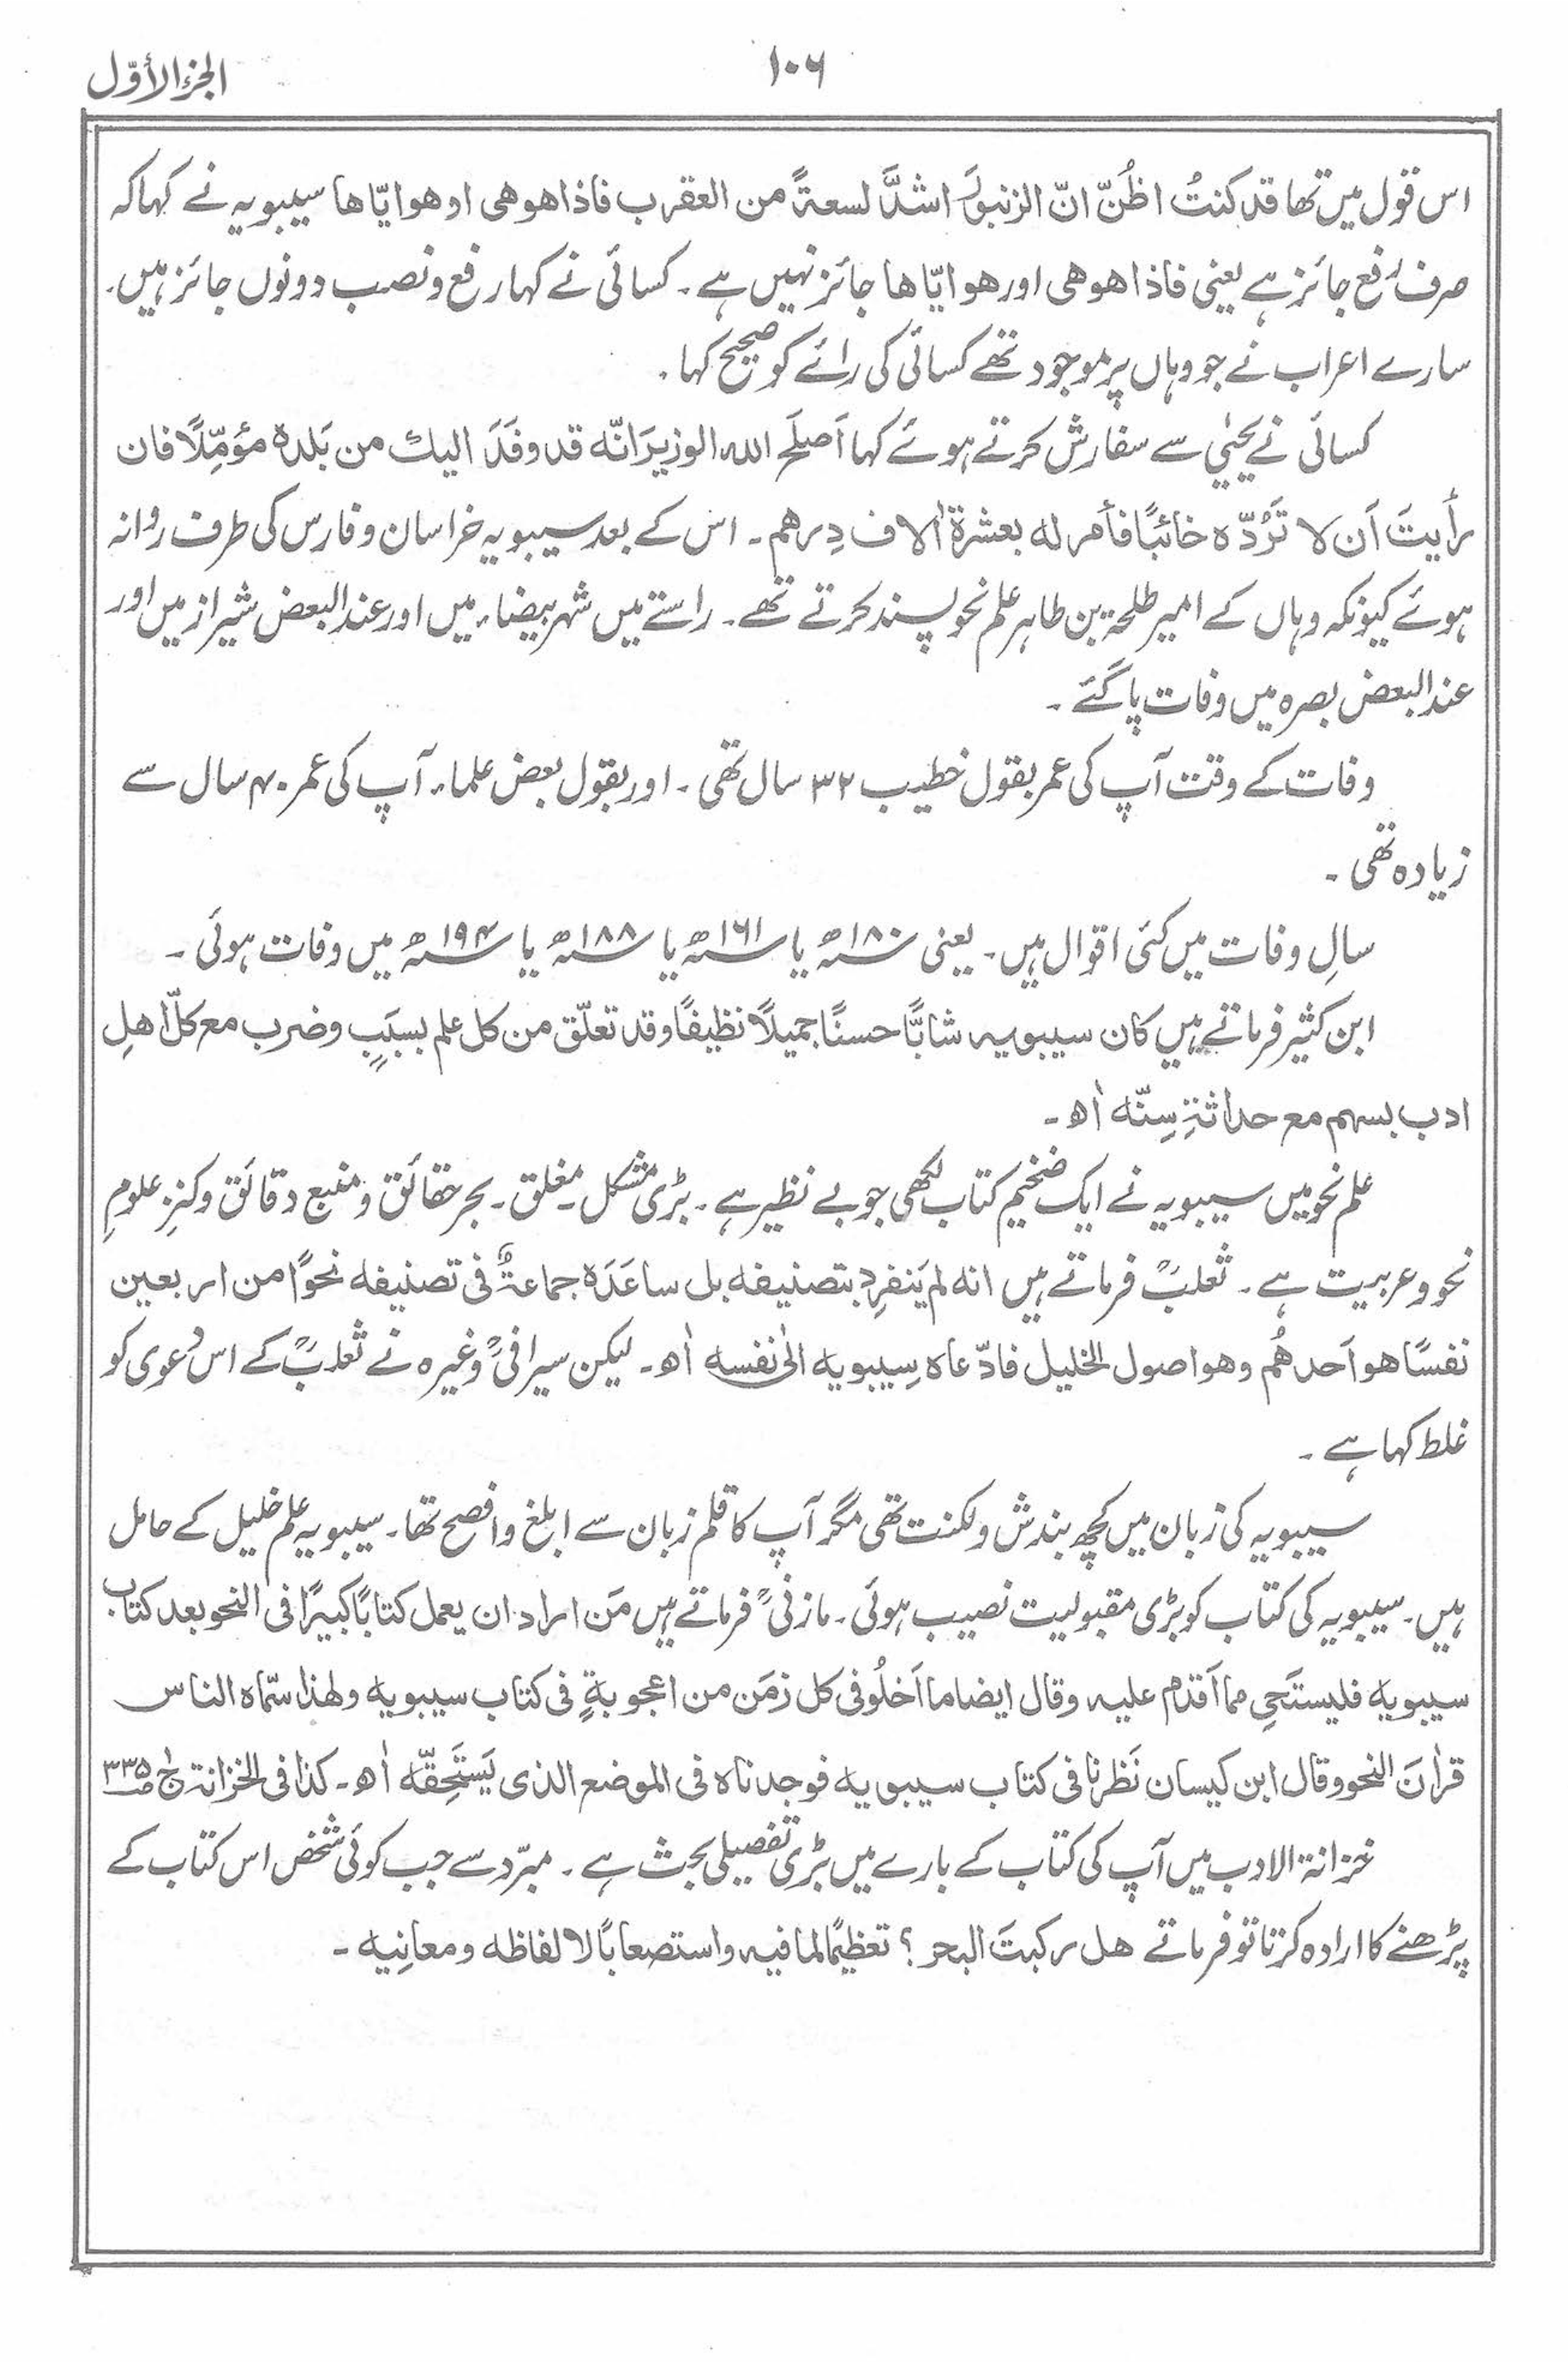 ۱۰۶
الجزء الأوّل
اس قول میں تھا قد کنتُ اظُنّ انّ الزنبورَ اشدَّ لسعۃً من العقرب فاذا ھو ھی او ھو ایّا ھا سیبویہ نے کہا کہ
صرف رفع جائز ہے یعنی فاذا ھو ھی اور ھو ایّا ھا جائز نہیں ہے ۔ کسائی نے کہا رفع و نصب دونوں جائز ہیں ۔
سارے اعراب نے جو وہاں پر موجود تھے کسائی کی رائے کو صحیح کہا ۔
کسائی نے یحیٰی سے سفارش کرتے ہوئے کہا اَصلَح اللہ الوزیرَ انّہ قد وفَدَ الیك من بَلدہ مؤمِّلًا فان
رأیتَ اَن لا تَرُدّہ خائبًا فأمر لہ بعشرۃ اٰلاف دِرھم ۔ اس کے بعد سیبویہ خراسان و فارس کی طرف روانہ
ہوئے کیونکہ وہاں کے امیر طلحۃ بن طاہر علم نحو پسند کرتے تھے ۔ راستے میں شہر بیضاء میں اور عند البعض شیراز میں اور
عند البعض بصرہ میں وفات پا گئے ۔
وفات کے وقت آپ کی عمر بقول خطیب ۳۲ سال تھی ۔ اور بقول بعض علماء آپ کی عمر ۴۰ سال سے
زیادہ تھی ۔
سالِ وفات میں کئی اقوال ہیں ۔ یعنی ۱۸۰ھ یا ۱۶۱ھ یا ۱۸۸ھ یا ۱۹۴ھ میں وفات ہوئی ۔
ابن کثیر فرماتے ہیں کان سیبویہ شابًّا حسنًا جمیلًا نظیفًا وقد تعلّق من کل علم بسبَبٍ وضرب مع کلّ اھلِ
ادب بسہم مع حداثۃِ سِنّہ اٰھ ۔
علم نحو میں سیبویہ نے ایک ضخیم کتاب لکھی جو بے نظیر ہے ۔ بڑی مشکل ۔ مغلق ۔ بحر حقائق و منبع دقائق و کنزِ علومِ
نحو و عربیت ہے ۔ ثعلبؒ فرماتے ہیں انہ لم یَنفرِد بتصنیفہ بل ساعَدَہ جماعۃٌ فی تصنیفہ نحوًا من اربعین
نفسًا ھو اَحدھُم وھو اصول الخلیل فادّعاہ سِیبویہ الیٰ نفسہ اٰھ ۔ لیکن سیرافیؒ وغیرہ نے ثعلبؒ کے اس دعوی کو
غلط کہا ہے ۔
سیبویہ کی زبان میں کچھ بندش و لکنت تھی مگر آپ کا قلم زبان سے ابلغ وافصح تھا ۔ سیبویہ علم خلیل کے حامل
ہیں ۔ سیبویہ کی کتاب کو بڑی مقبولیت نصیب ہوئی ۔ مازنیؒ فرماتے ہیں مَن اراد ان یعمل کتابًا کبیرًا فی النحو بعد کتاب
سیبویہ فلیستَحِی مما اَقدَم علیہ وقال ایضا ما اَخلُو فی کل زمَن من اعجوبۃٍ فی کتاب سیبویہ ولھٰذا سمّاہ الناس
قراٰنَ النحو وقال ابن کیسان نَظَرنا فی کتاب سیبویہ فوجدناہ فی الموضع الذی یَستَحِقّہ اٰھ ۔ کذا فی الخزانۃ ج۱ ص۳۳۵
خزانۃ الادب میں آپ کی کتاب کے بارے میں بڑی تفصیلی بحث ہے ۔ مبرّد سے جب کوئی شخص اس کتاب کے
پڑھنے کا ارادہ کرتا تو فرماتے ھل رکبتَ البحر ؟ تعظیمًا لما فیہ واستصعابًا لالفاظہ ومعانِیہ ۔